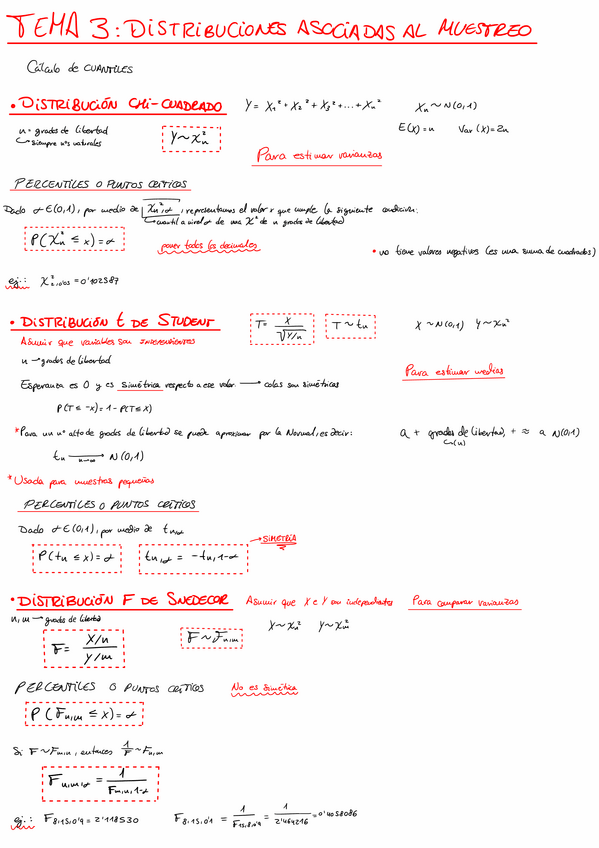 TEMA 3: DISTRIBUCIONES ASOCIADAS AL MUESTREO
Cálculo de CUANTILES
• DISTRIBUCIÓN CHI-CUADRADO Y = X₁² + X₂² + X₃² + ... + Xₙ² Xₙ ~ N(0,1)
n = grados de libertad Y ~ χ²ₙ E(X) = n Var (X) = 2n
↪ siempre nºs naturales
Para estimar varianzas
PERCENTILES O PUNTOS CRÍTICOS
Dado α ∈ (0,1), por medio de χ²ₙ,α, representamos el valor x que cumple la siguiente condición:
↪ cuantil a nivel α de una χ² de n grados de libertad
P(χ²ₙ ≤ x) = α poner todos los decimales
• no tiene valores negativos (es una suma de cuadrados)
ej.: χ²₂,₀'₀₅ = 0'102587
• DISTRIBUCIÓN t DE STUDENT T = X / √(Y/n) T ~ tₙ X ~ N(0,1) Y ~ χₙ²
Asumir que variables son INDEPENDIENTES
n → grados de libertad
Para estimar medias
Esperanza es 0 y es simétrica respecto a ese valor → colas son simétricas
P(T ≤ -x) = 1 - P(T ≤ x)
*Para un nº alto de grados de libertad se puede aproximar por la Normal, es decir: a + grados de libertad, + ≈ a N(0,1)
↪ (n)
tₙ → N(0,1)
n→∞
*Usada para muestras pequeñas
PERCENTILES O PUNTOS CRÍTICOS
Dado α ∈ (0,1), por medio de tₙ,α
→ SIMETRÍA
P(tₙ ≤ x) = α tₙ,α = -tₙ,₁₋α
• DISTRIBUCIÓN F DE SNEDECOR Asumir que X e Y son independientes Para comparar varianzas
n, m → grados de libertad
F = (X/n) / (Y/m) F ~ Fₙ,ₘ X ~ χₙ² Y ~ χₘ²
PERCENTILES O PUNTOS CRÍTICOS No es simétrica
P(Fₙ,ₘ ≤ x) = α
Si F ~ Fₘ,ₙ, entonces 1/F ~ Fₙ,ₘ
Fₙ,ₘ,α = 1 / Fₘ,ₙ,₁₋α
ej.: F₈,₁₅,₀'₉ = 2'118530 F₈,₁₅,₀'₁ = 1 / F₁₅,₈,₀'₉ = 1 / 2'464216 = 0'4058086